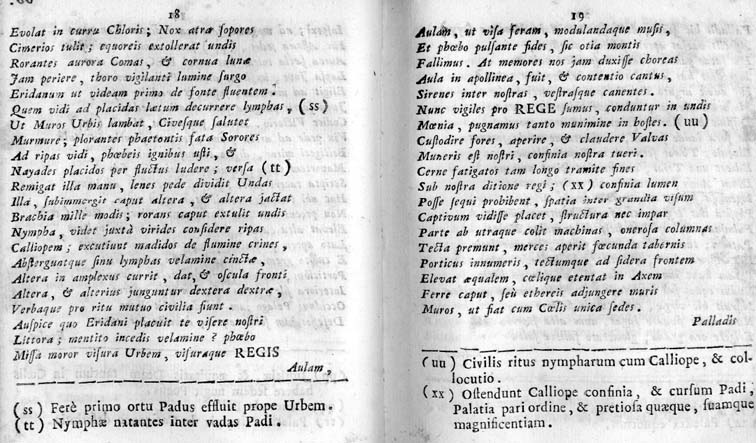 18
Evolat in curru Chloris; Nox atra sopores
Cimerios tulit; equoreis extollerat undis
Rorantes aurora Comas, & cornua lunæ
Jam periere, thoro vigilanti lumine surgo
Eridanum ut videam primo de fonte fluentem.
Quem vidi ad placidas lætum decurrere lymphas, (ss)
Ut Muros Urbis lambat, Civesque salutet
Murmure; plorantes phaetontis fata Sorores
Ad ripas vidi, phœbeis ignibus usti, &
Nayades placidos per fluctus ludere; versa (tt)
Remigat illa manu, lenes pede dividit Undas
Illa, subimmergit caput altera, & altera jactat
Brachia mille modis; rorans caput extulit undis
Nympha, videt juxtà virides considere ripas
Calliopem; excutiunt madidos de flumine crines,
Absterguntque sinu lymphas velamine cinctæ,
Altera in amplexus currit, dat, & oscula fronti
Altera, & alterius junguntur dextera dextræ,
Verbaque pro ritu mutuo civilia fiunt.
Auspice quo Eridani placuit te visere nostri
Littora; mentito incedis velamine? phœbo
Missa moror visura Urbem, visuraque REGIS
Aulam,
(ss) Ferè primo ortu Padus effluit prope Urbem.
(tt) Nymphæ natantes inter vadas Padi.
19
Aulam, ut visa feram, modulandaque musis,
Et phœbo pulsante fides, sic otia montis
Fallimus. At memores nos jam duxisse choreas
Aula in apollinea, fuit, & contentio cantus,
Sirenes inter nostras, vestrasque canentes.
Nunc vigiles pro REGE sumus, conduntur in undis
Mœnia, pugnamus tanto munimine in hostes. (uu)
Custodire fores, aperire, & claudere Valvas
Muneris est nostri, confinia nostra tueri.
Cerne fatigatos tam longo tramite fines
Sub nostra ditione regi; (xx) confinia lumen
Posse sequi prohibent, spatia inter grandia visum
Captivum vidisse placet, structura nec impar
Parte ab utraque colit machinas, onerosa columnas
Tecta premunt, merces aperit fœcunda tabernis
Porticus innumeris, tectumque ad sidera frontem
Elevat æqualem, cœlique etentat in Axem
Ferre caput, seù ethereis adjungere muris
Muros, ut fiat cum Cœlis unica sedes.
Palladis
(uu) Civilis ritus nympharum cum Calliope, & col-
locutio.
(xx) Ostendunt Calliope confinia, & cursum Padi,
Palatia pari ordine, & pretiosa quæque, suamque
magnificentiam.